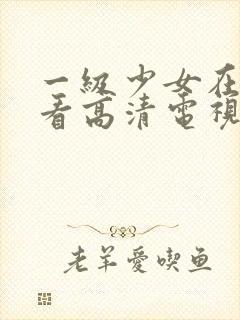 一級少女在
看高清電視
老羊愛喫鱼